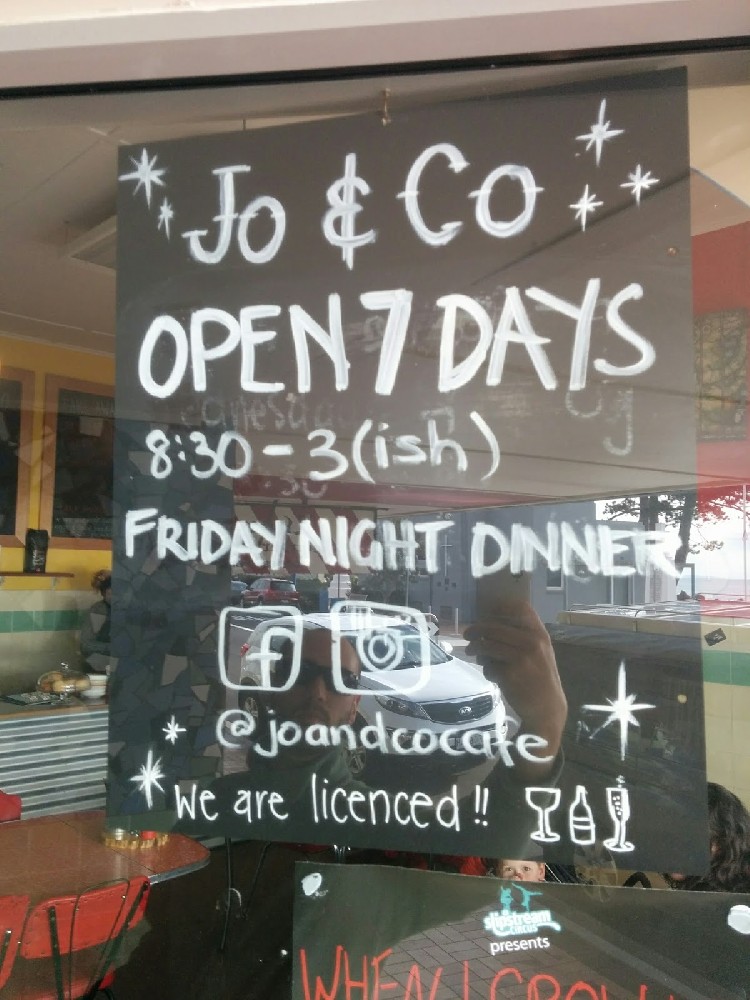 Jo & Co
OPEN 7 DAYS
8:30 - 3 (ish)
FRIDAY NIGHT DINNER
@joandcocafe
We are licenced!!
slipstream
CIRCUS
presents
WHEN I GROW